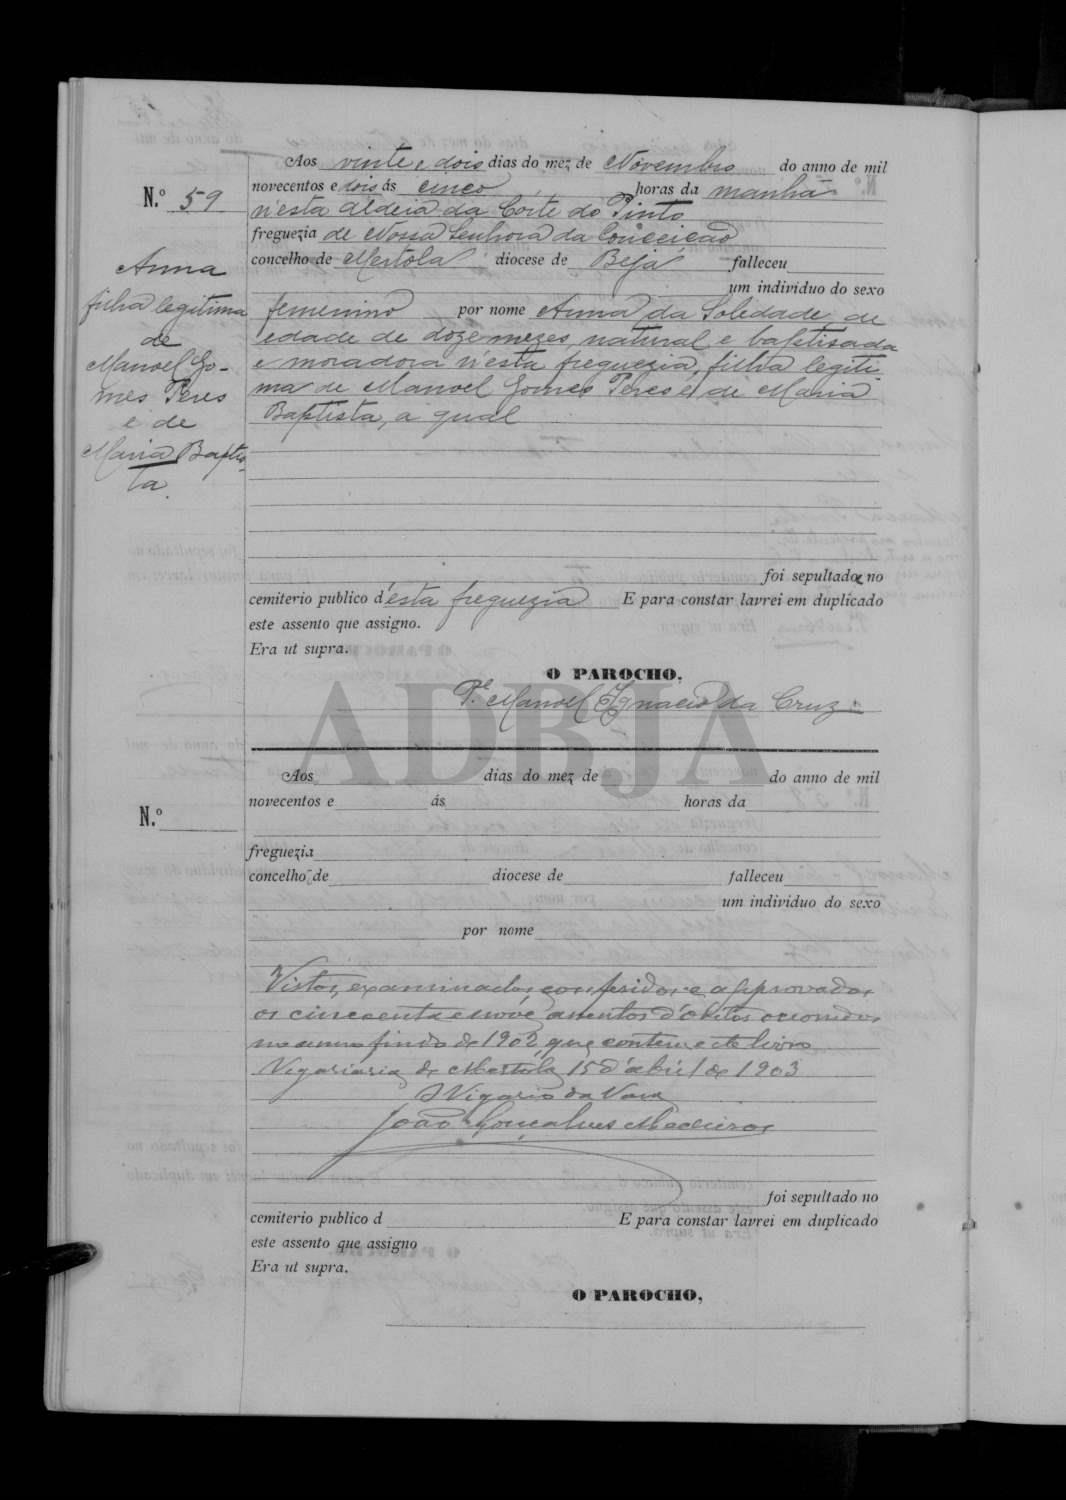 Aos vinte e dois dias do mez de Novembro do anno de mil
novecentos e dois ás cinco horas da manhã
N.º 59
n'esta aldeia da Corte do Pinto
freguezia de Nossa Senhora da Conceicão
concelho de Mertola diocese de Beja falleceu
um individuo do sexo
femenino por nome Anna da Soledade, de
edade de doze mezes, natural e baptisada
e moradora n'esta freguezia, filha legiti-
ma de Manoel Gomes Peres e de Maria
Baptista, a qual
Anna
filha legitima
de
Manoel Go-
mes Peres
e de
Maria Baptis-
ta.
foi sepultada no
cemiterio publico d'esta freguezia E para constar lavrei em duplicado
este assento que assigno.
Era ut supra.
O PAROCHO,
P.e Manoel Ignacio da Cruz
ADBJA
Aos dias do mez de do anno de mil
novecentos e ás horas da
N.º
freguezia
concelho de diocese de falleceu
um individuo do sexo
por nome
Vistos, examinados, conferidos e approvados
os cincoenta e nove assentos d'obitos occorridos
no anno findo de 1902, que contem este livro
Vigariaria de Mertola, 15 d'abril de 1903
O Vigario da Vara
João Gonçalves Medeiros
foi sepultado no
cemiterio publico d E para constar lavrei em duplicado
este assento que assigno
Era ut supra.
O PAROCHO,